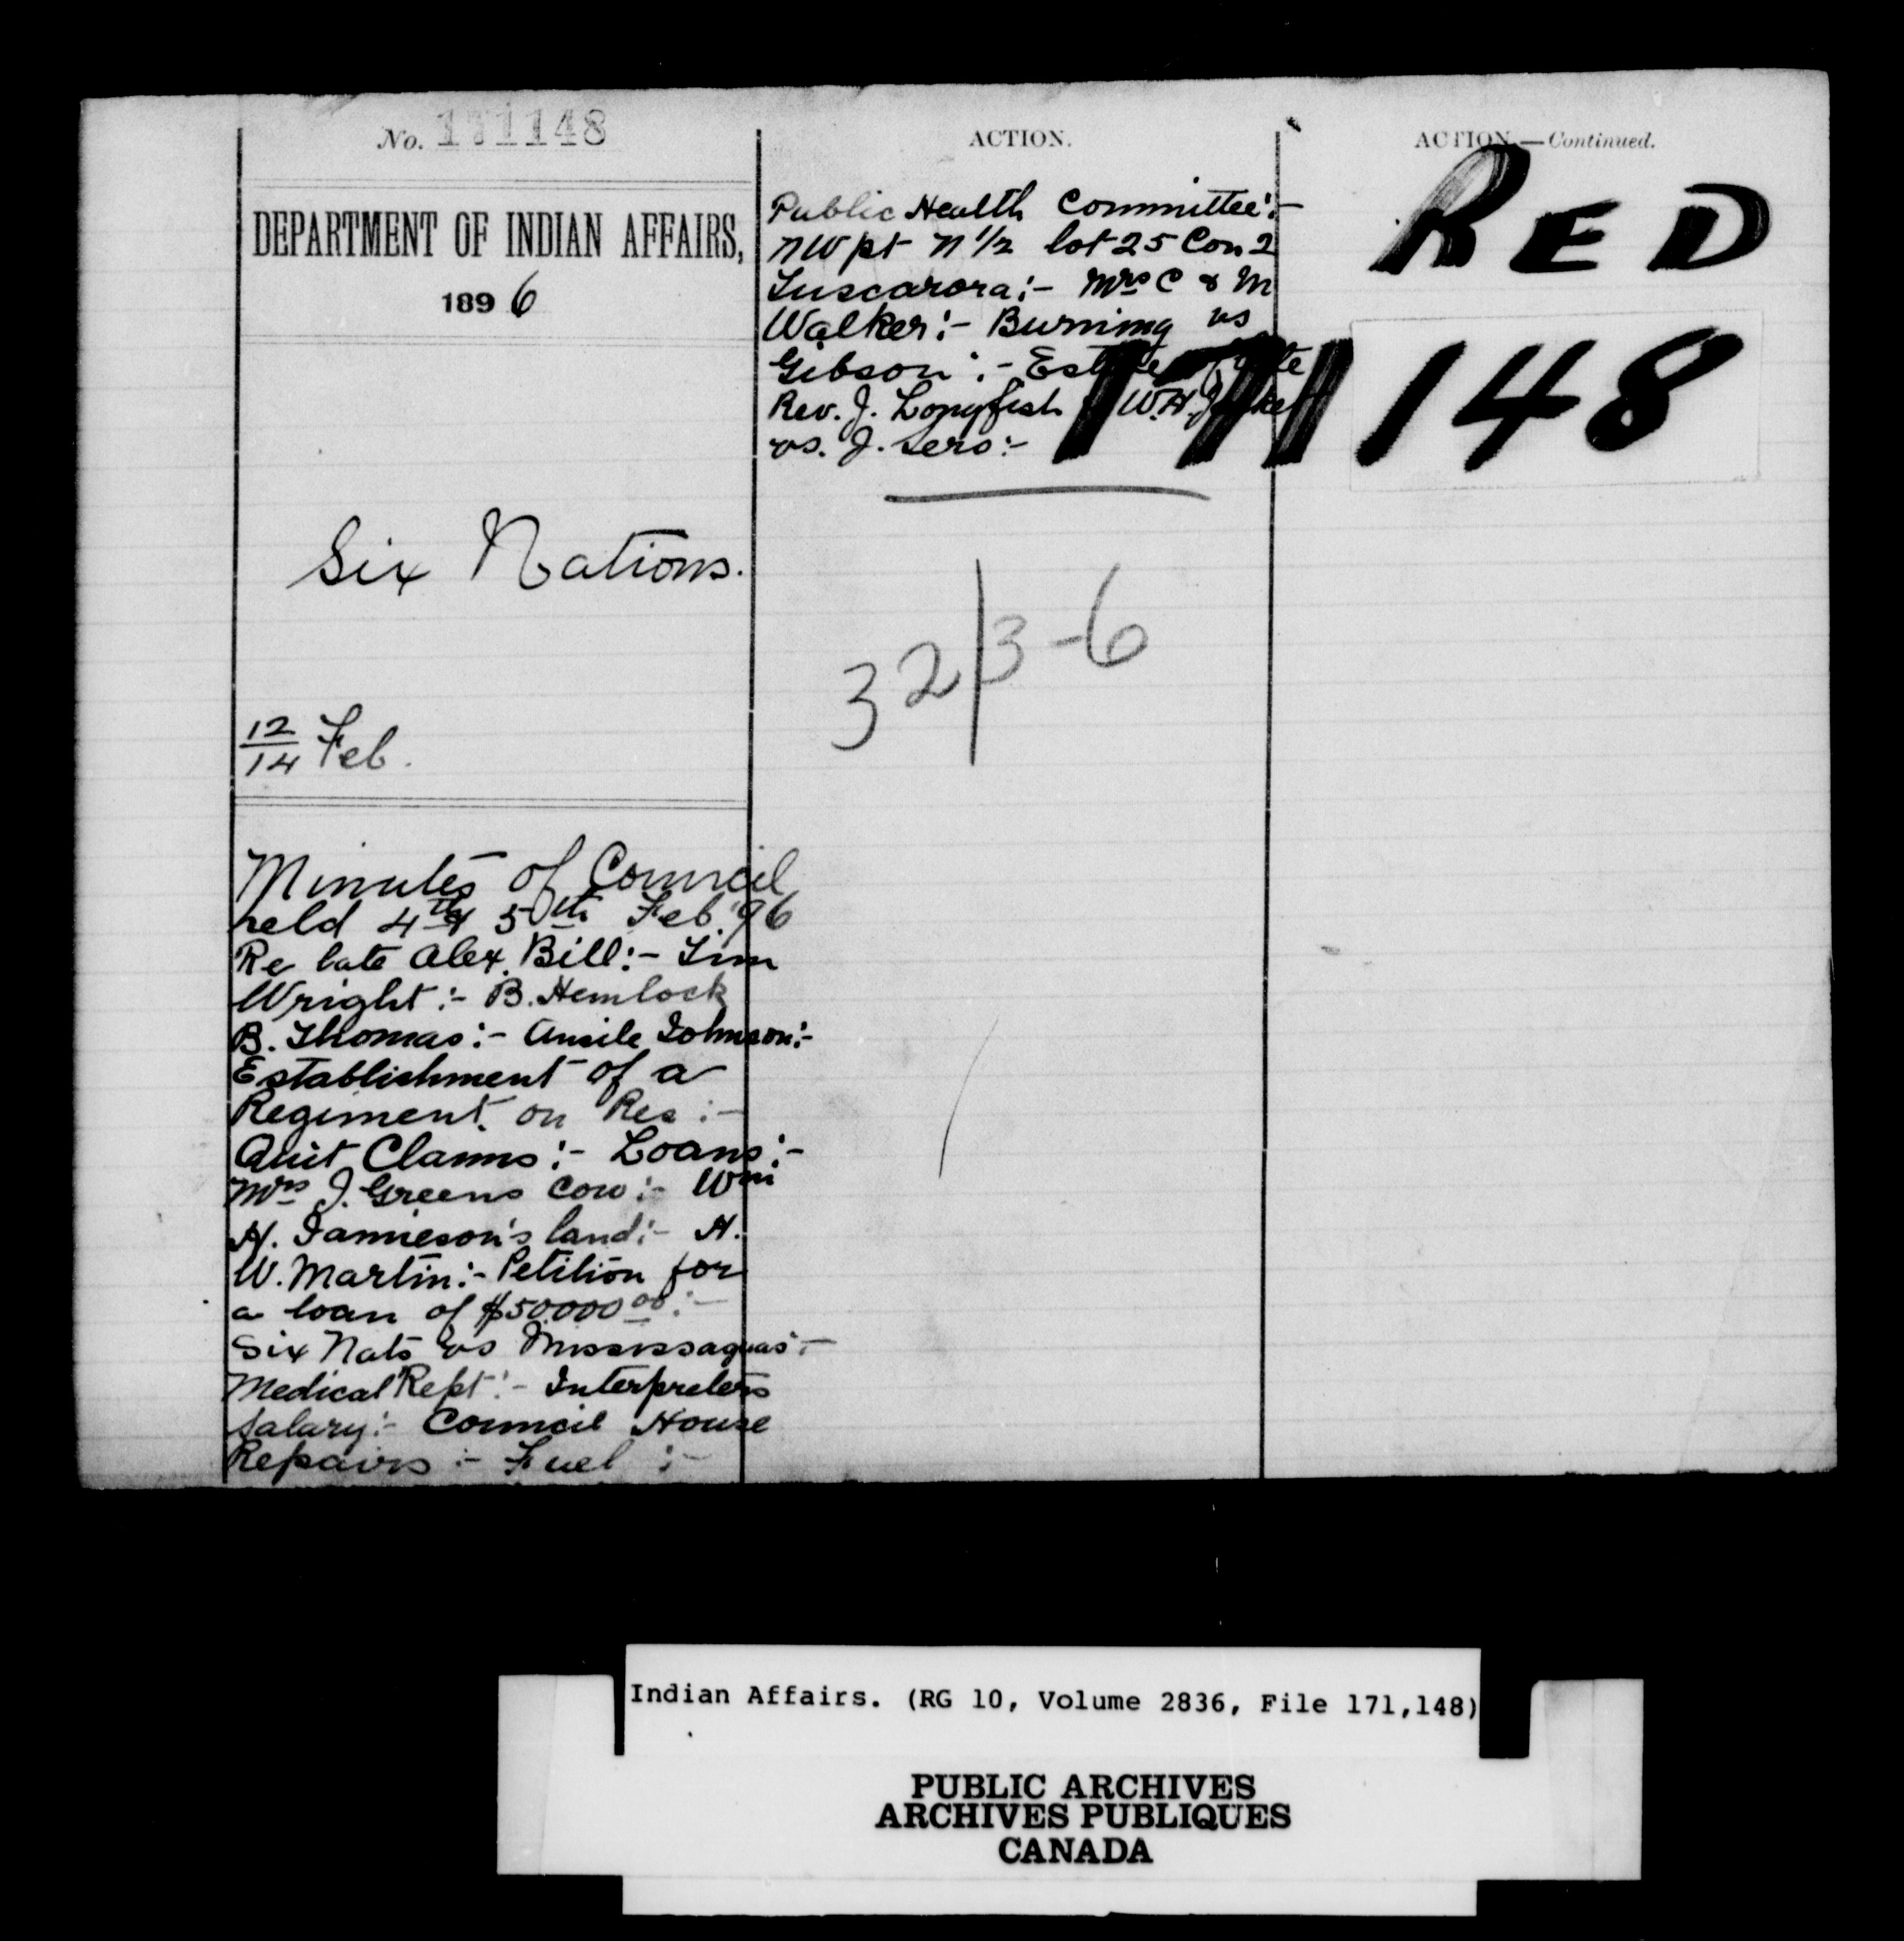 No. 171148
DEPARTMENT OF INDIAN AFFAIRS,
1896
Six Nations.
12/14 Feb.
Minutes of Council
held 4th & 5th Feb. '96
Re late Alex. Bill:- Jim
Wright:- B. Hemlock
B. Thomas:- Ansile Johnson:-
Establishment of a
Regiment on Res:-
Quit Claims:- Loans:-
Mrs J. Greens Cow:- Wm
H. Jamieson's land:- H.
W. Martin:- Petition for
a loan of $50000 00:-
Six Nats vs Mississaguas:-
Medical Rept:- Interpreters
Salary:- Council House
Repairs:- Fuel:-
ACTION.
Public Health Committee:-
NW pt N 1/2 lot 25 Con 2
Tuscarora:- Mrs C & M
Walker:- Burning vs
Gibson:- Estate of late
Rev. J. Longfish W.H.
vs. J. Sero:-
32/3-6
ACTION.—Continued.
RED
171148
Indian Affairs. (RG 10, Volume 2836, File 171,148)
PUBLIC ARCHIVES
ARCHIVES PUBLIQUES
CANADA